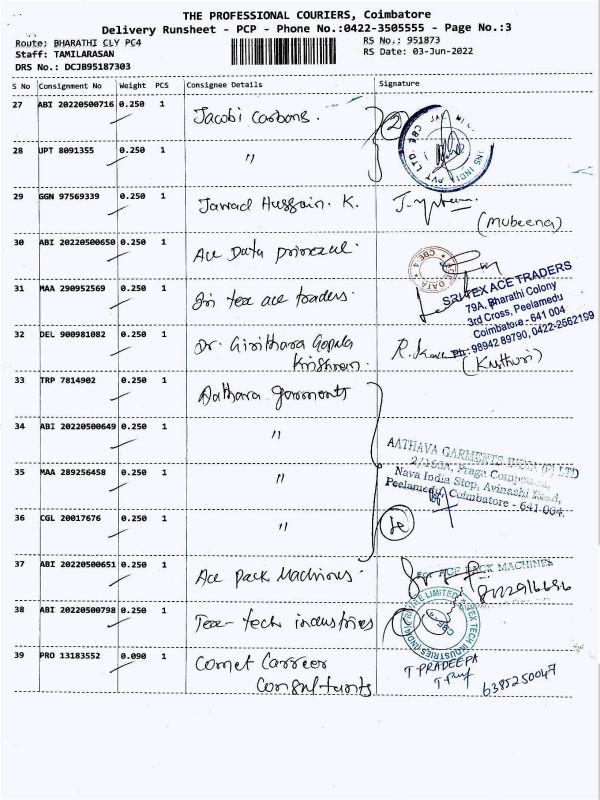 THE PROFESSIONAL COURIERS, Coimbatore
Delivery Runsheet - PCP - Phone No.:0422-3505555 - Page No.:3
Route: BHARATHI CLY PC4 RS No.: 951873
Staff: TAMILARASAN RS Date: 03-Jun-2022
DRS No.: DCJB95187303
S No Consignment No Weight PCS Consignee Details Signature
27 ABI 20220500716 0.250 1 Jacobi Carbons. 2
28 JPT 8091355 0.250 1 "
PVT LTD
CBE
29 GGN 97569339 0.250 1 Jawad Hussain. K.
(Mubeena)
30 ABI 20220500650 0.250 1 Ace Data
CBE 4
31 MAA 290952569 0.250 1 Sri tex ace traders.
SRI TEX ACE TRADERS
79A, Bharathi Colony
3rd Cross, Peelamedu
Coimbatore - 641 004
Ph: 98942 89790, 0422-2562199
32 DEL 900981082 0.250 1 Dr. Girithara Gopala
Krishnan.
(Kasthuri)
33 TRP 7814902 0.250 1 Aathava garments
34 ABI 20220500649 0.250 1 "
AATHAVA GARMENTS INDIA (P) LTD
35 MAA 289256458 0.250 1 "
Nava India Stop, Avinashi Road,
Peelamedu, Coimbatore - 641 004.
36 CGL 20017676 0.250 1 "
37 ABI 20220500651 0.250 1 Ace Pack Machines.
For ACE PACK MACHINES
38 ABI 20220500798 0.250 1 Tex-tech industries
TEX TECH INDUSTRIES (INDIA) PRIVATE LIMITED
CBE - 4
39 PRO 13183552 0.090 1 Comet Carreer
Consultants
T PRADEEPA
6385250047